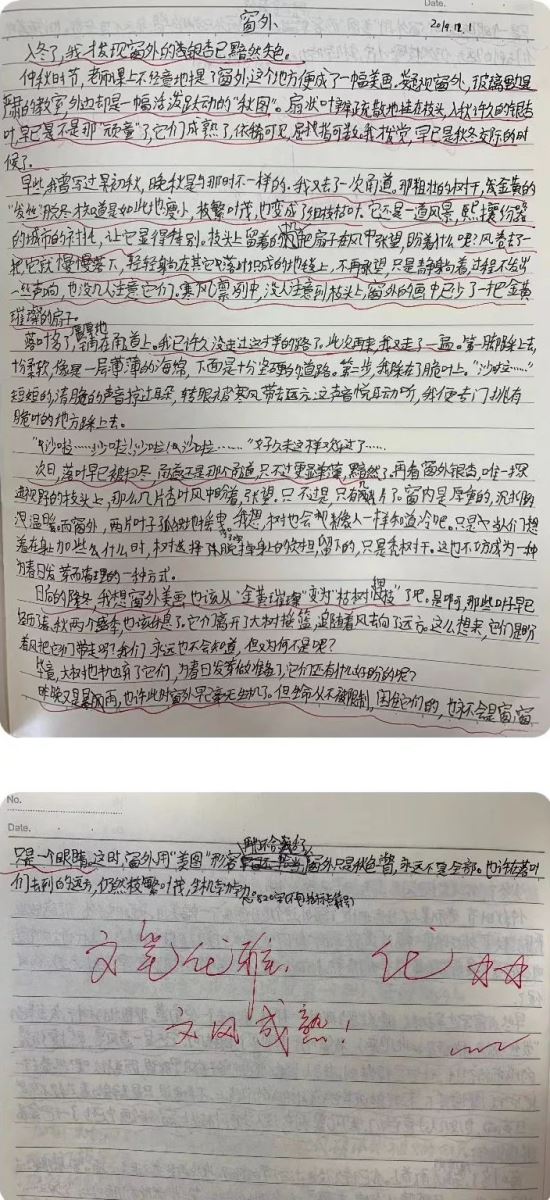 Date.
窗外
2019.12.1
入冬了,我才发现窗外的银杏已黯然失色。
仲秋时节,老师课上不经意地提了窗外,这个地方便成了一幅美画。
肃的教室,外边却是一幅活泼跃动的“秋图”。扇状叶
叶,早已是不是那“顽童”了,它们成熟了,依稀可见,屈指可数。我才发觉,早已是秋冬交际的时
候了。
早些,我曾写过早初秋,晚秋是与那时不一样的。我又去了一次甬道,那粗壮的树干,
它还是一道风景,熙攘
的城市的衬托,让它显得特别。枝头上留着的把扇子在风中张望,盼着什么呢?风卷去一
把,它就慢慢落下,轻轻躺在其它落叶织成的地毯上,不再张望,只是静躺着,过程不发出
一丝声响,也没几人注意它们。寒风凛冽中,没人注意到枝头上,窗外的画中已少了一把金黄
璀璨的扇子。
落叶多了,厚厚地铺在甬道上。我已许久没走过这才的路了。此次再来,我又走了一遍。第一脚踩上去,
十分柔软,像是一层薄薄的海绵,下面是十分坚硬的道路。第二步,我踩在了脆叶上。“沙啦……”
短短的清脆的声音掠过耳朵,转眼又被寒风带去远方。这声音悦耳动听,我便专门挑有
脆叶的地方踩上去。
“沙啦……沙啦!沙啦!沙啦……”好久未这样欢乐过了……
次日,落叶早已被扫尽,甬道还是那个甬道,只不过更显单薄,黯然了。再看窗外银杏,唯一探
进视野的枝头上,那么几片杏叶风中盼着,张望。只不过是
温馨。而窗外,两片叶子孤独地摇曳。我想,树也会和人一样知道冷吧。只是当人们想
着在身上加些什么时,树选择了脱掉身上的负担,留下的,只是秃树干。这也不妨成为一种
为春日发芽而准备的一种方式。
日后的隆冬,我想窗外美画也该从“金黄璀璨”变为“枯树”了吧。是啊,那些叶早已
经历了春,秋两个盛季,也该休息了。它们离开了大树摇篮,追随着风去向了远方。这么想来,它们是盼
着风把它们带走吗?我们永远也不会知道,但又为何不是呢?
毕竟,大树也抛弃了它们,为春日发芽做准备了,它们还有什么好盼的呢?
昨晚又是暴风雨,也许此时窗外早已毫无生机了。但生命从不被限制,困住它们的,也永不会是窗,窗
No.
Date.
只是一个眼睛。这时,窗外用“美图”形容
窗外只是秋色一瞥,永远不是全部。也许在落叶
们去到的远方,仍然枝繁叶茂,生机勃勃。
文笔优雅, 优
文风成熟!